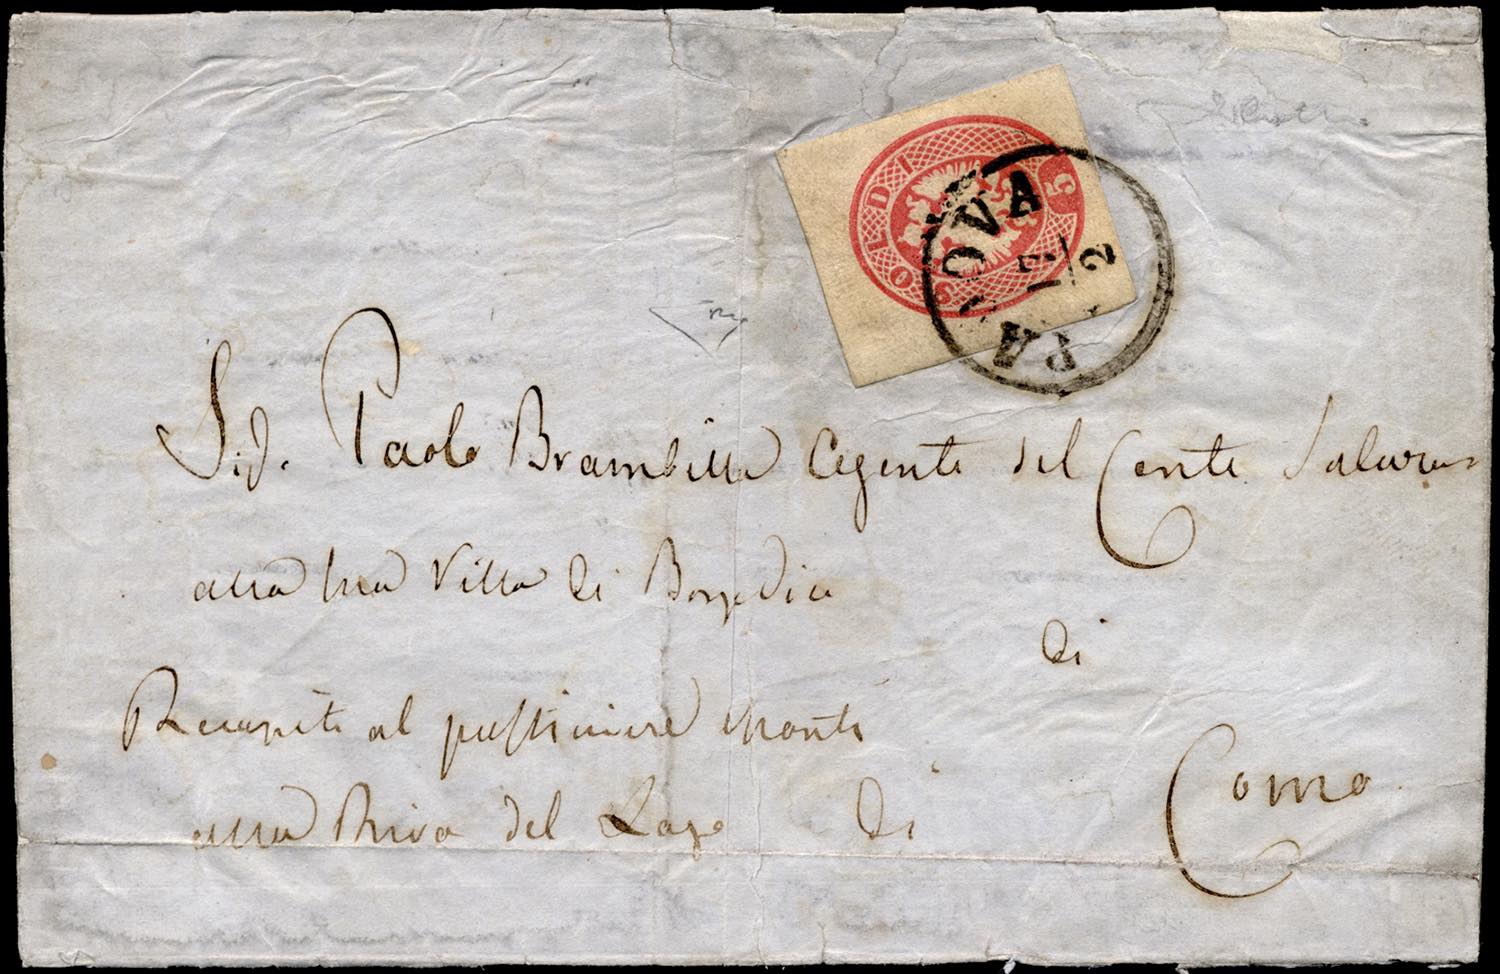 5 SOLDI
PADOVA
17/2
Sig. Paolo Brambilla Agente del Conte
alla Sua Villa di
di
Recapito al postiniere Monti
alla Riva del Lago di Como